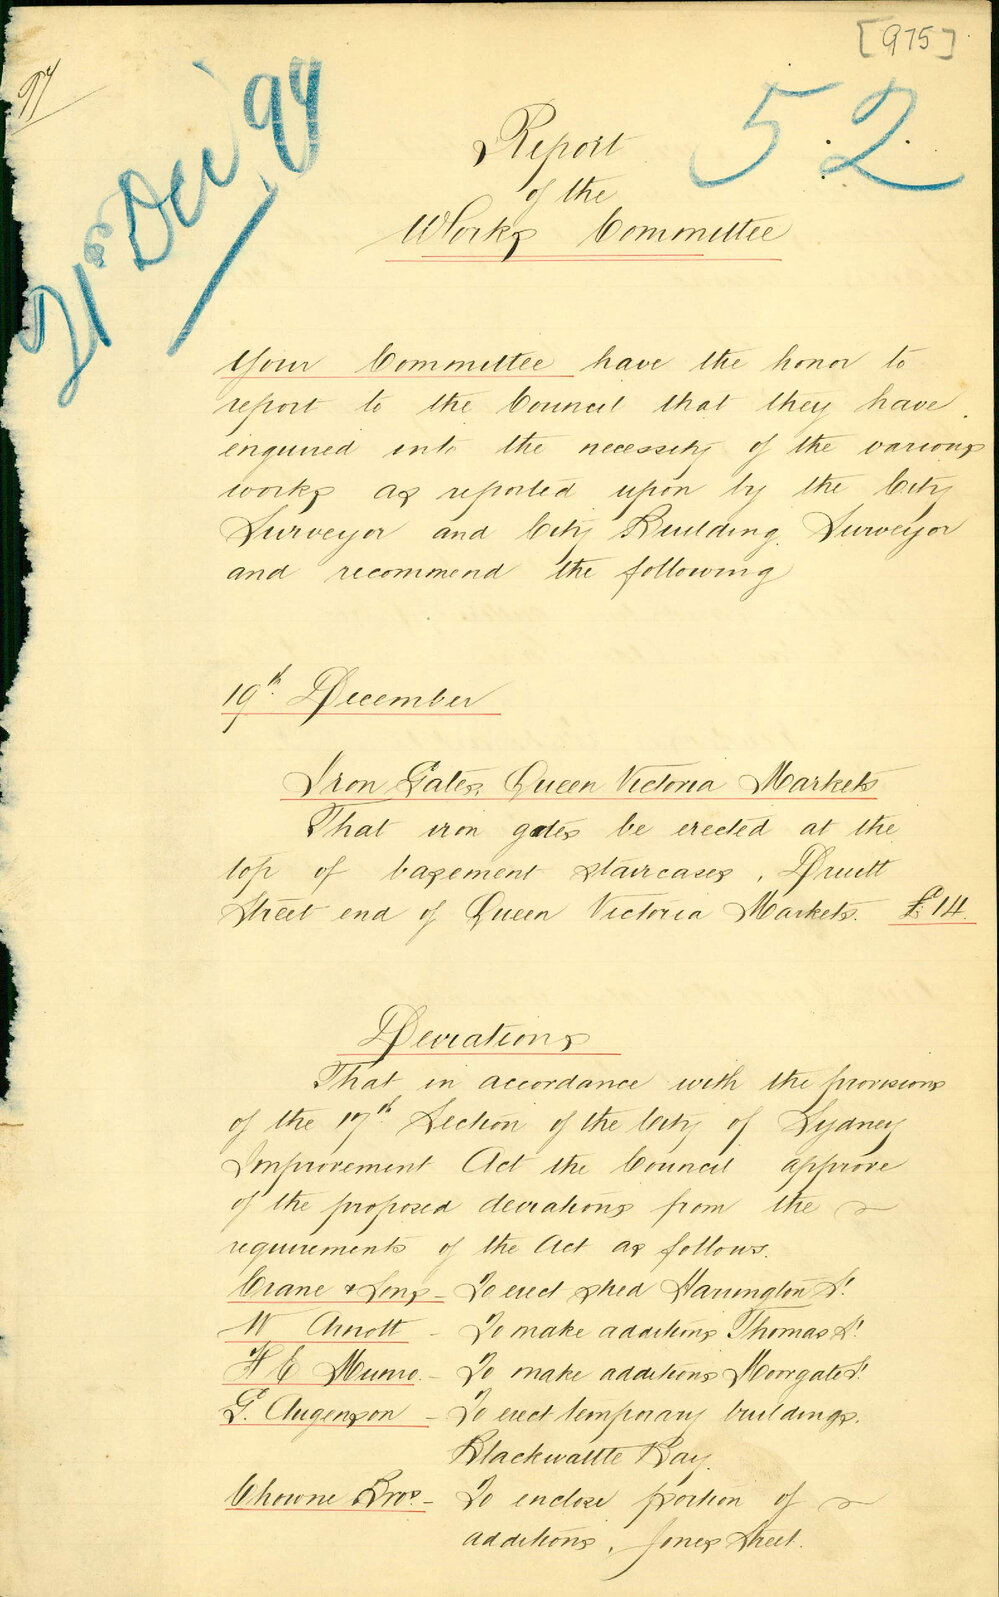 [975]
97
21st Dec '94
52
Report
of the
Works Committee
Your Committee have the honor to
report to the Council that they have
enquired into the necessity of the various
works as reported upon by the City
Surveyor and City Building Surveyor
and recommend the following
19th December
Iron Gates, Queen Victoria Markets
That iron gates be erected at the
top of basement staircases, Druitt
Street end of Queen Victoria Markets. £14.
Deviations
That in accordance with the provisions
of the 17th Section of the City of Sydney
Improvement Act the Council approve
of the proposed deviations from the
requirements of the Act as follows.
Crane & Sons - To erect shed Harrington St.
W Arnott - To make additions Thomas St.
H E Munro. - To make additions Moorgate St.
G. Augenson - To erect temporary buildings.
Blackwattle Bay.
Chowne Bros - To enclose portion of
additions, Jones Street.